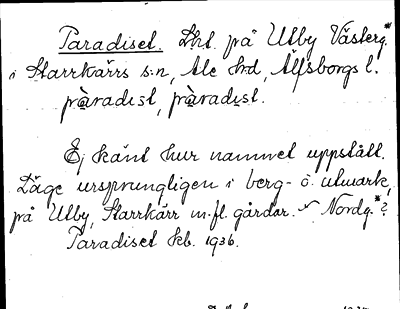 Paradiset. Lht. på Utby Västerg.*
i Starrkärrs s:n, Ale hd, Älfsborgs l.
pàradist, pàradist.
Ej känt hur namnet uppstått.
Läge ursprungligen i berg- o. utmark,
på Utby, Starrkärr m. fl. gårdar. Nordg.*?
Paradiset kb. 1936.